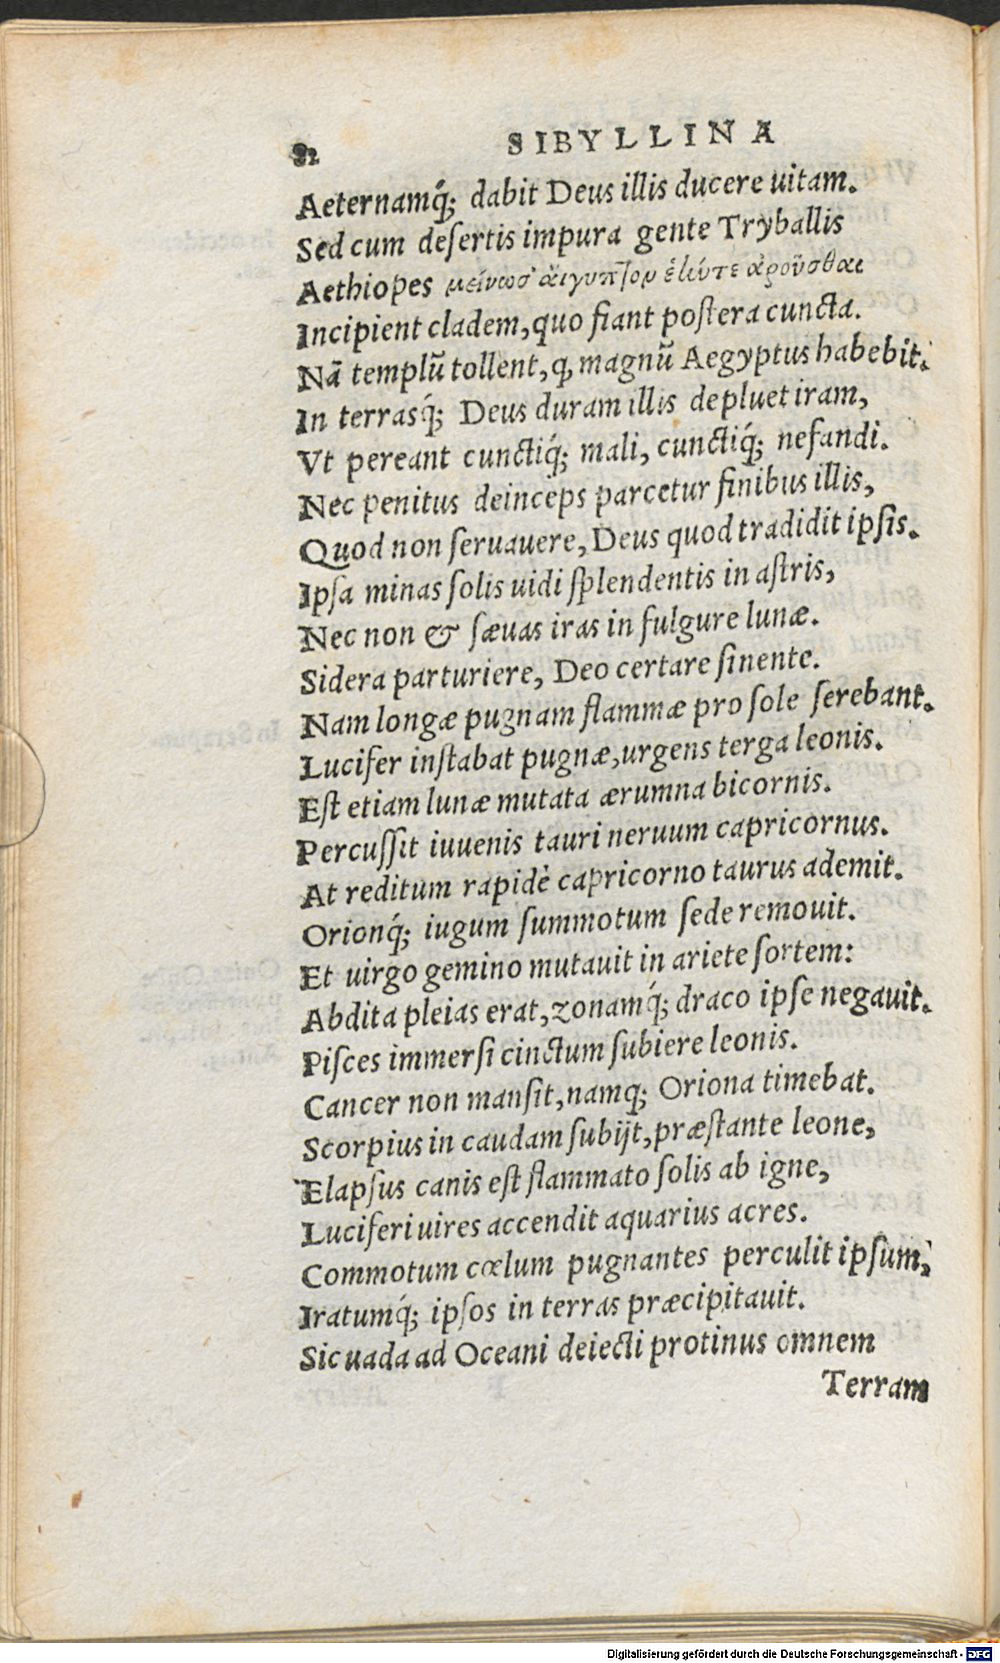 82 SIBYLLINA
Aeternamq́; dabit Deus illis ducere uitam.
Sed cum desertis impura gente Tryballis
Aethiopes
Incipient cladem, quo fiant postera cuncta.
Nã templũ tollent, q, magnũ Aegyptus habebit.
In terrasq́; Deus duram illis depluet iram,
Vt pereant cunctiq́; mali, cunctiq́; nefandi.
Nec penitus deinceps parcetur finibus illis,
Quod non seruauere, Deus quod tradidit ipsis.
Ipsa minas solis uidi splendentis in astris,
Nec non & sæuas iras in fulgure lunæ.
Sidera parturiere, Deo certare sinente.
Nam longæ pugnam flammæ pro sole serebant.
Lucifer instabat pugnæ, urgens terga leonis.
Est etiam lunæ mutata ærumna bicornis.
Percussit iuuenis tauri neruum capricornus.
At reditum rapidè capricorno taurus ademit.
Orionq́; iugum summotum sede remouit.
Et uirgo gemino mutauit in ariete sortem:
Abdita pleias erat, zonamq́; draco ipse negauit.
Pisces immersi cinctum subiere leonis.
Cancer non mansit, namq; Oriona timebat.
Scorpius in caudam subijt, præstante leone,
Elapsus canis est flammato solis ab igne,
Luciferi uires accendit aquarius acres.
Commotum cœlum pugnantes perculit ipsum,
Iratumq́; ipsos in terras præcipitauit.
Sic uada ad Oceani deiecti protinus omnem
Terram
Digitalisierung gefördert durch die Deutsche Forschungsgemeinschaft - DFG